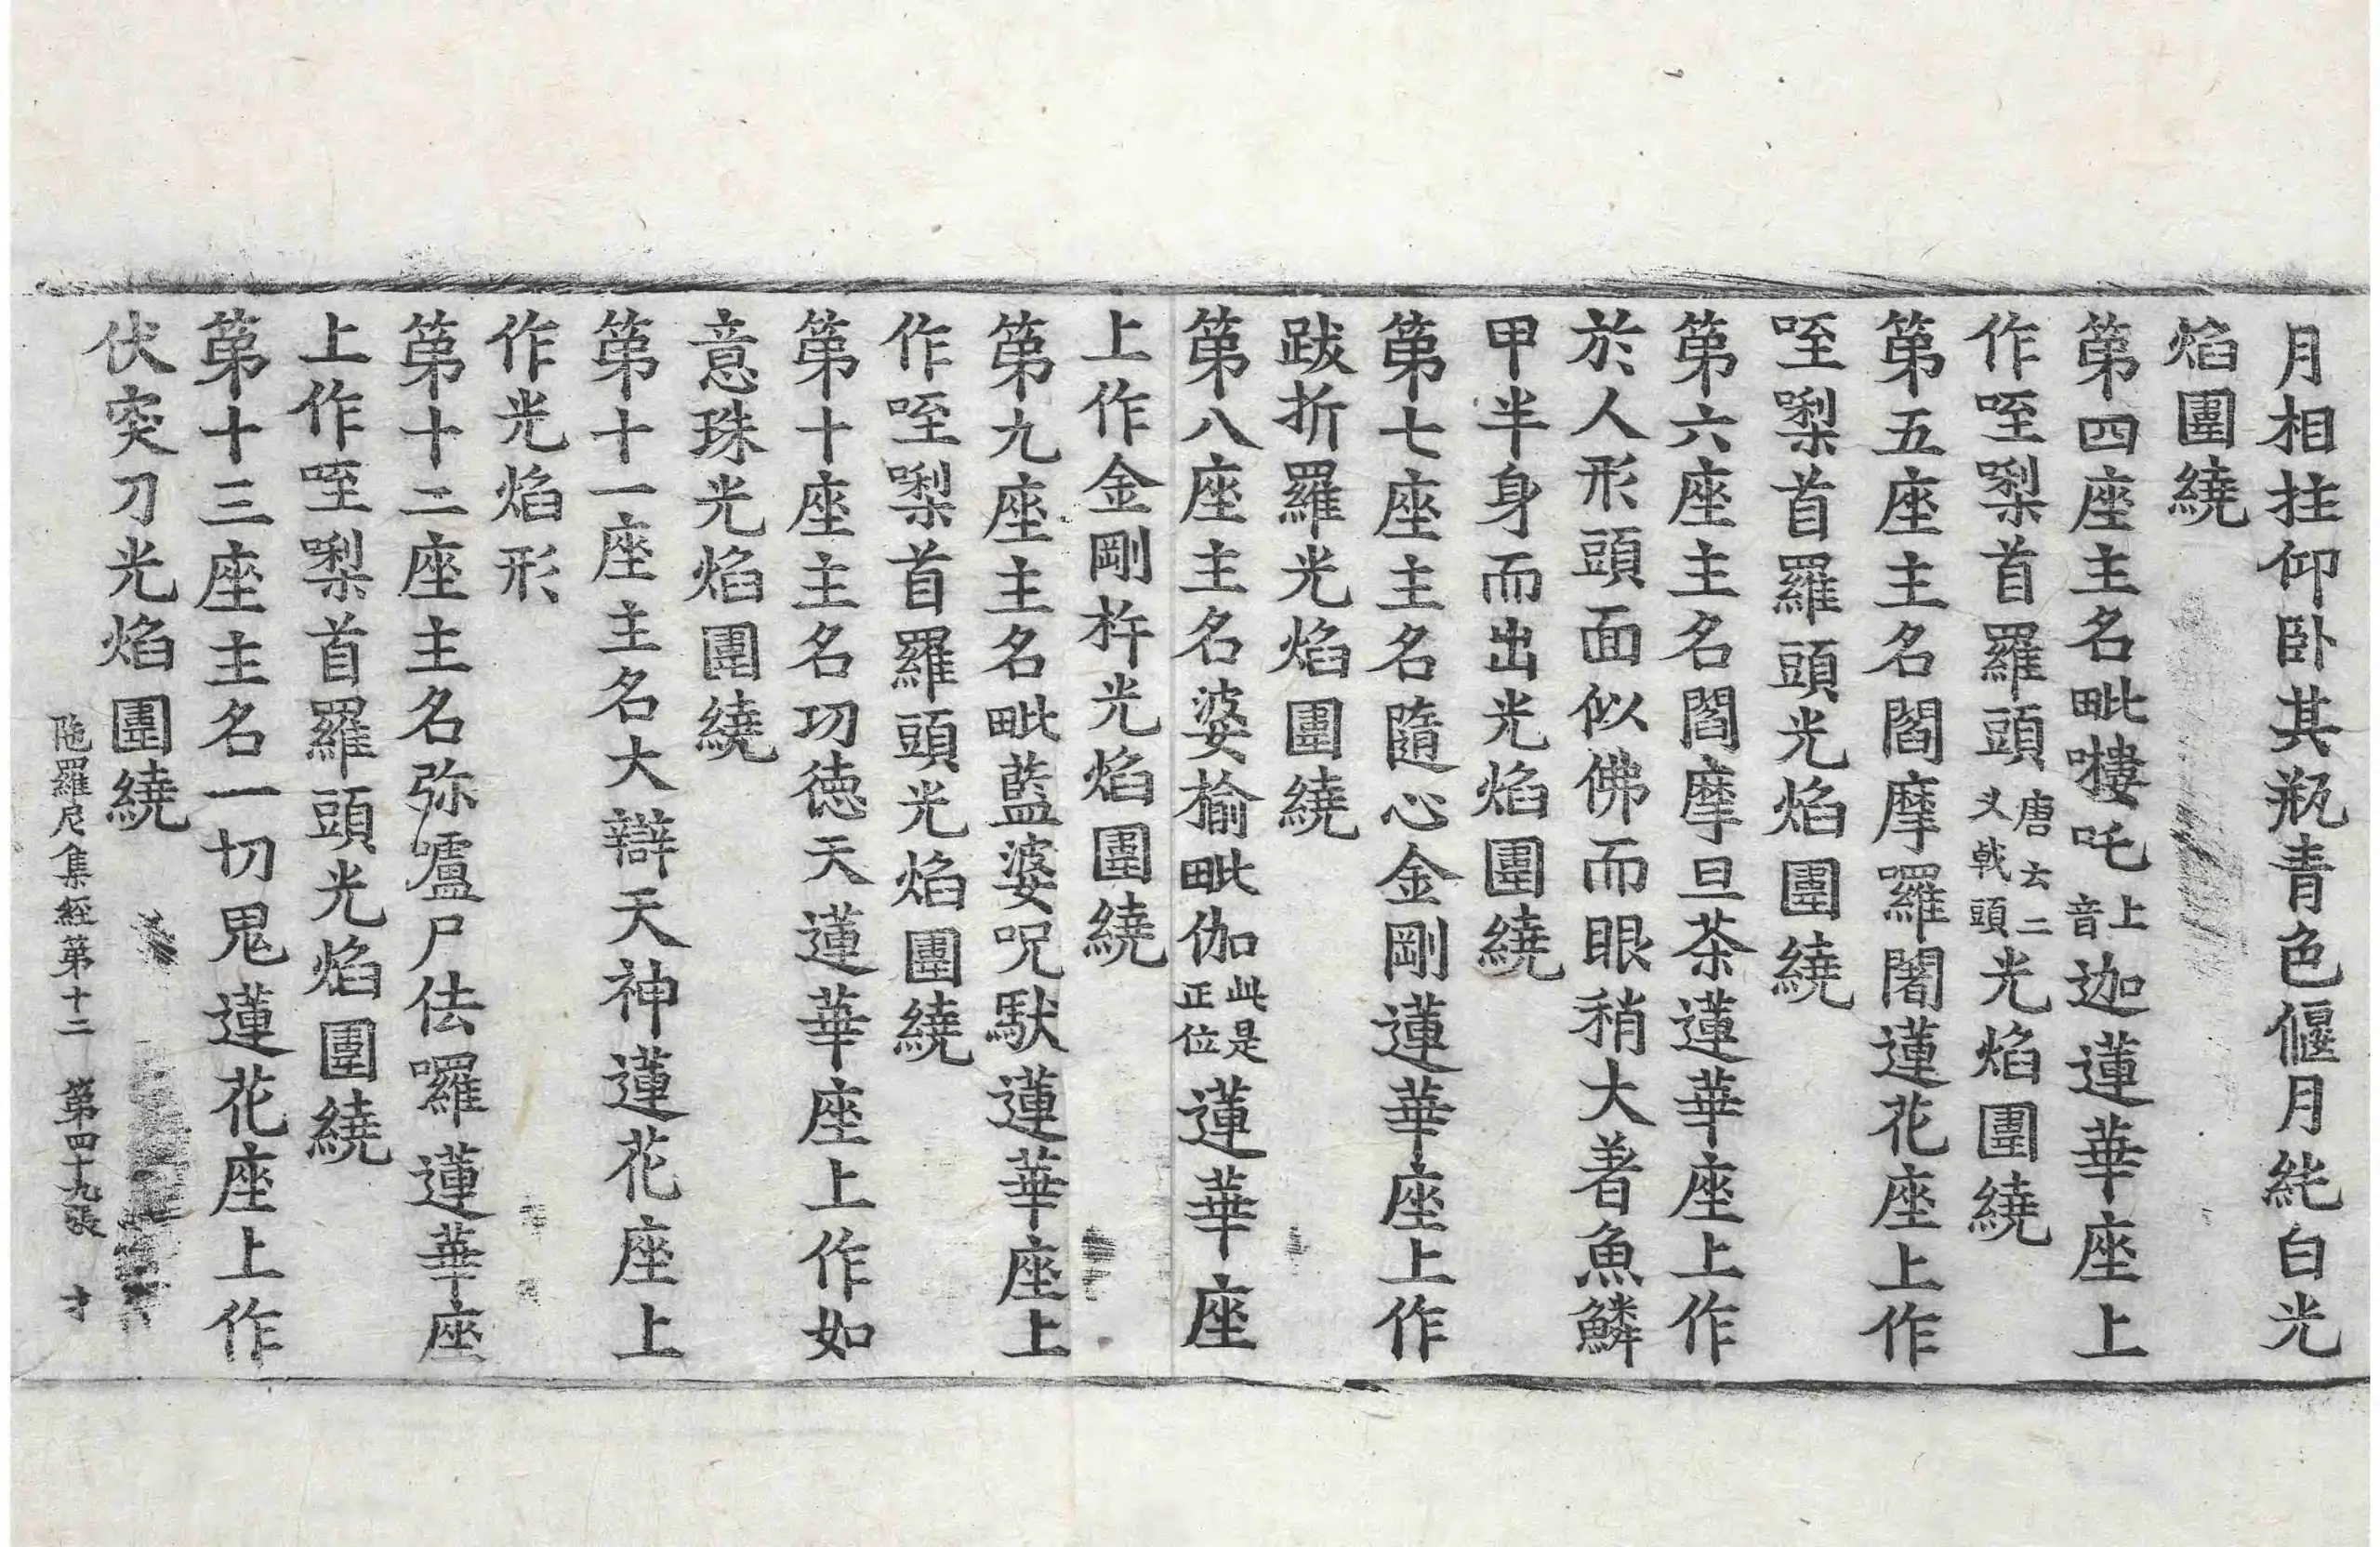 月相拄仰卧其瓶青色偃月純白光
焰圍繞
第四座主名毗嘍吒上音迦蓮華座上
作咥㗚首羅頭唐云二叉戟頭光焰圍繞
第五座主名閻摩囉闍蓮花座上作
咥㗚首羅頭光焰圍繞
第六座主名閻摩旦茶蓮華座上作
於人形頭面似佛而眼稍大著魚鱗
甲半身而出光焰圍繞
第七座主名隨心金剛蓮華座上作
跋折羅光焰圍繞
第八座主名婆揄毗伽此是正位蓮華座
上作金剛杵光焰圍繞
第九座主名毗藍婆呪馱蓮華座上
作咥㗚首羅頭光焰圍繞
第十座主名功德天蓮華座上作如
意珠光焰圍繞
第十一座主名大辯天神蓮花座上
作光焰形
第十二座主名弥嚧尸佉囉蓮華座
上作咥㗚首羅頭光焰圍繞
第十三座主名一切鬼蓮花座上作
伏突刀光焰圍繞
陁羅尼集經第十二 第四十九張 才